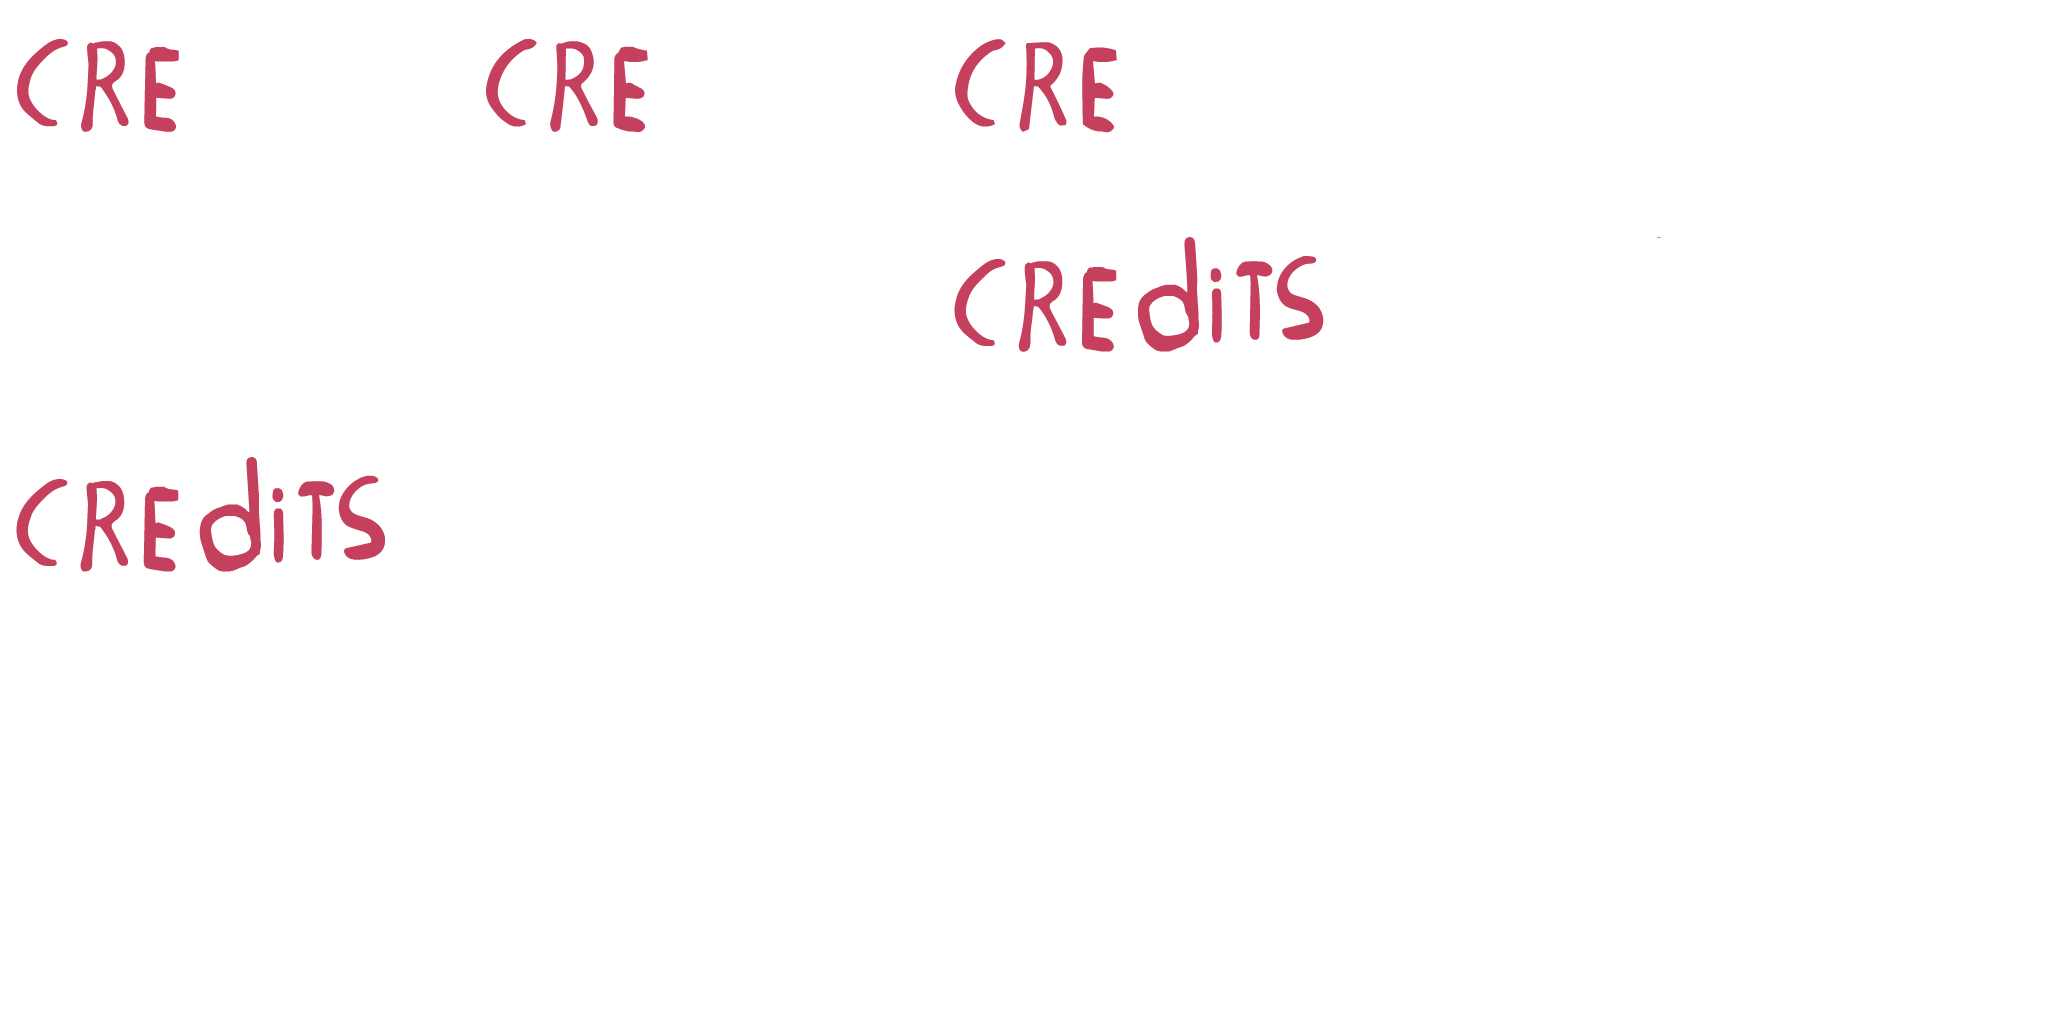 CRE CRE CRE
CREdiTS
CREdiTS